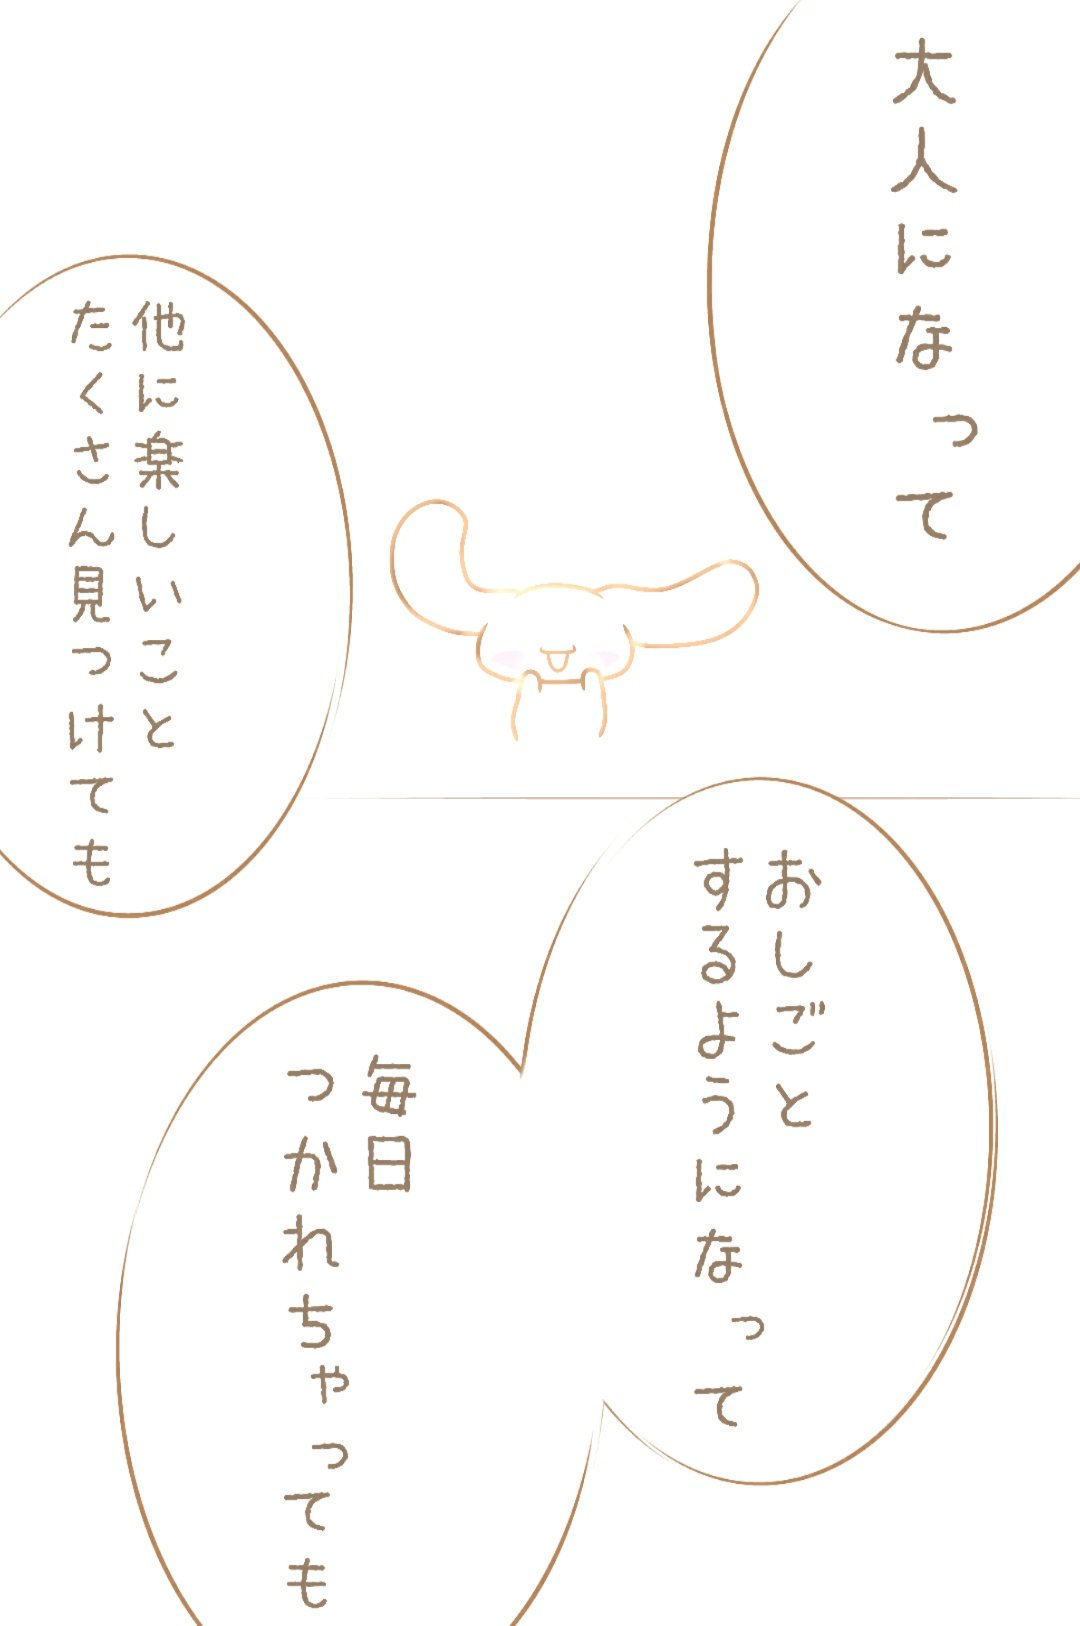 大人になって
他に楽しいこと
たくさん見つけても
おしごと
するようになって
毎日
つかれちゃっても